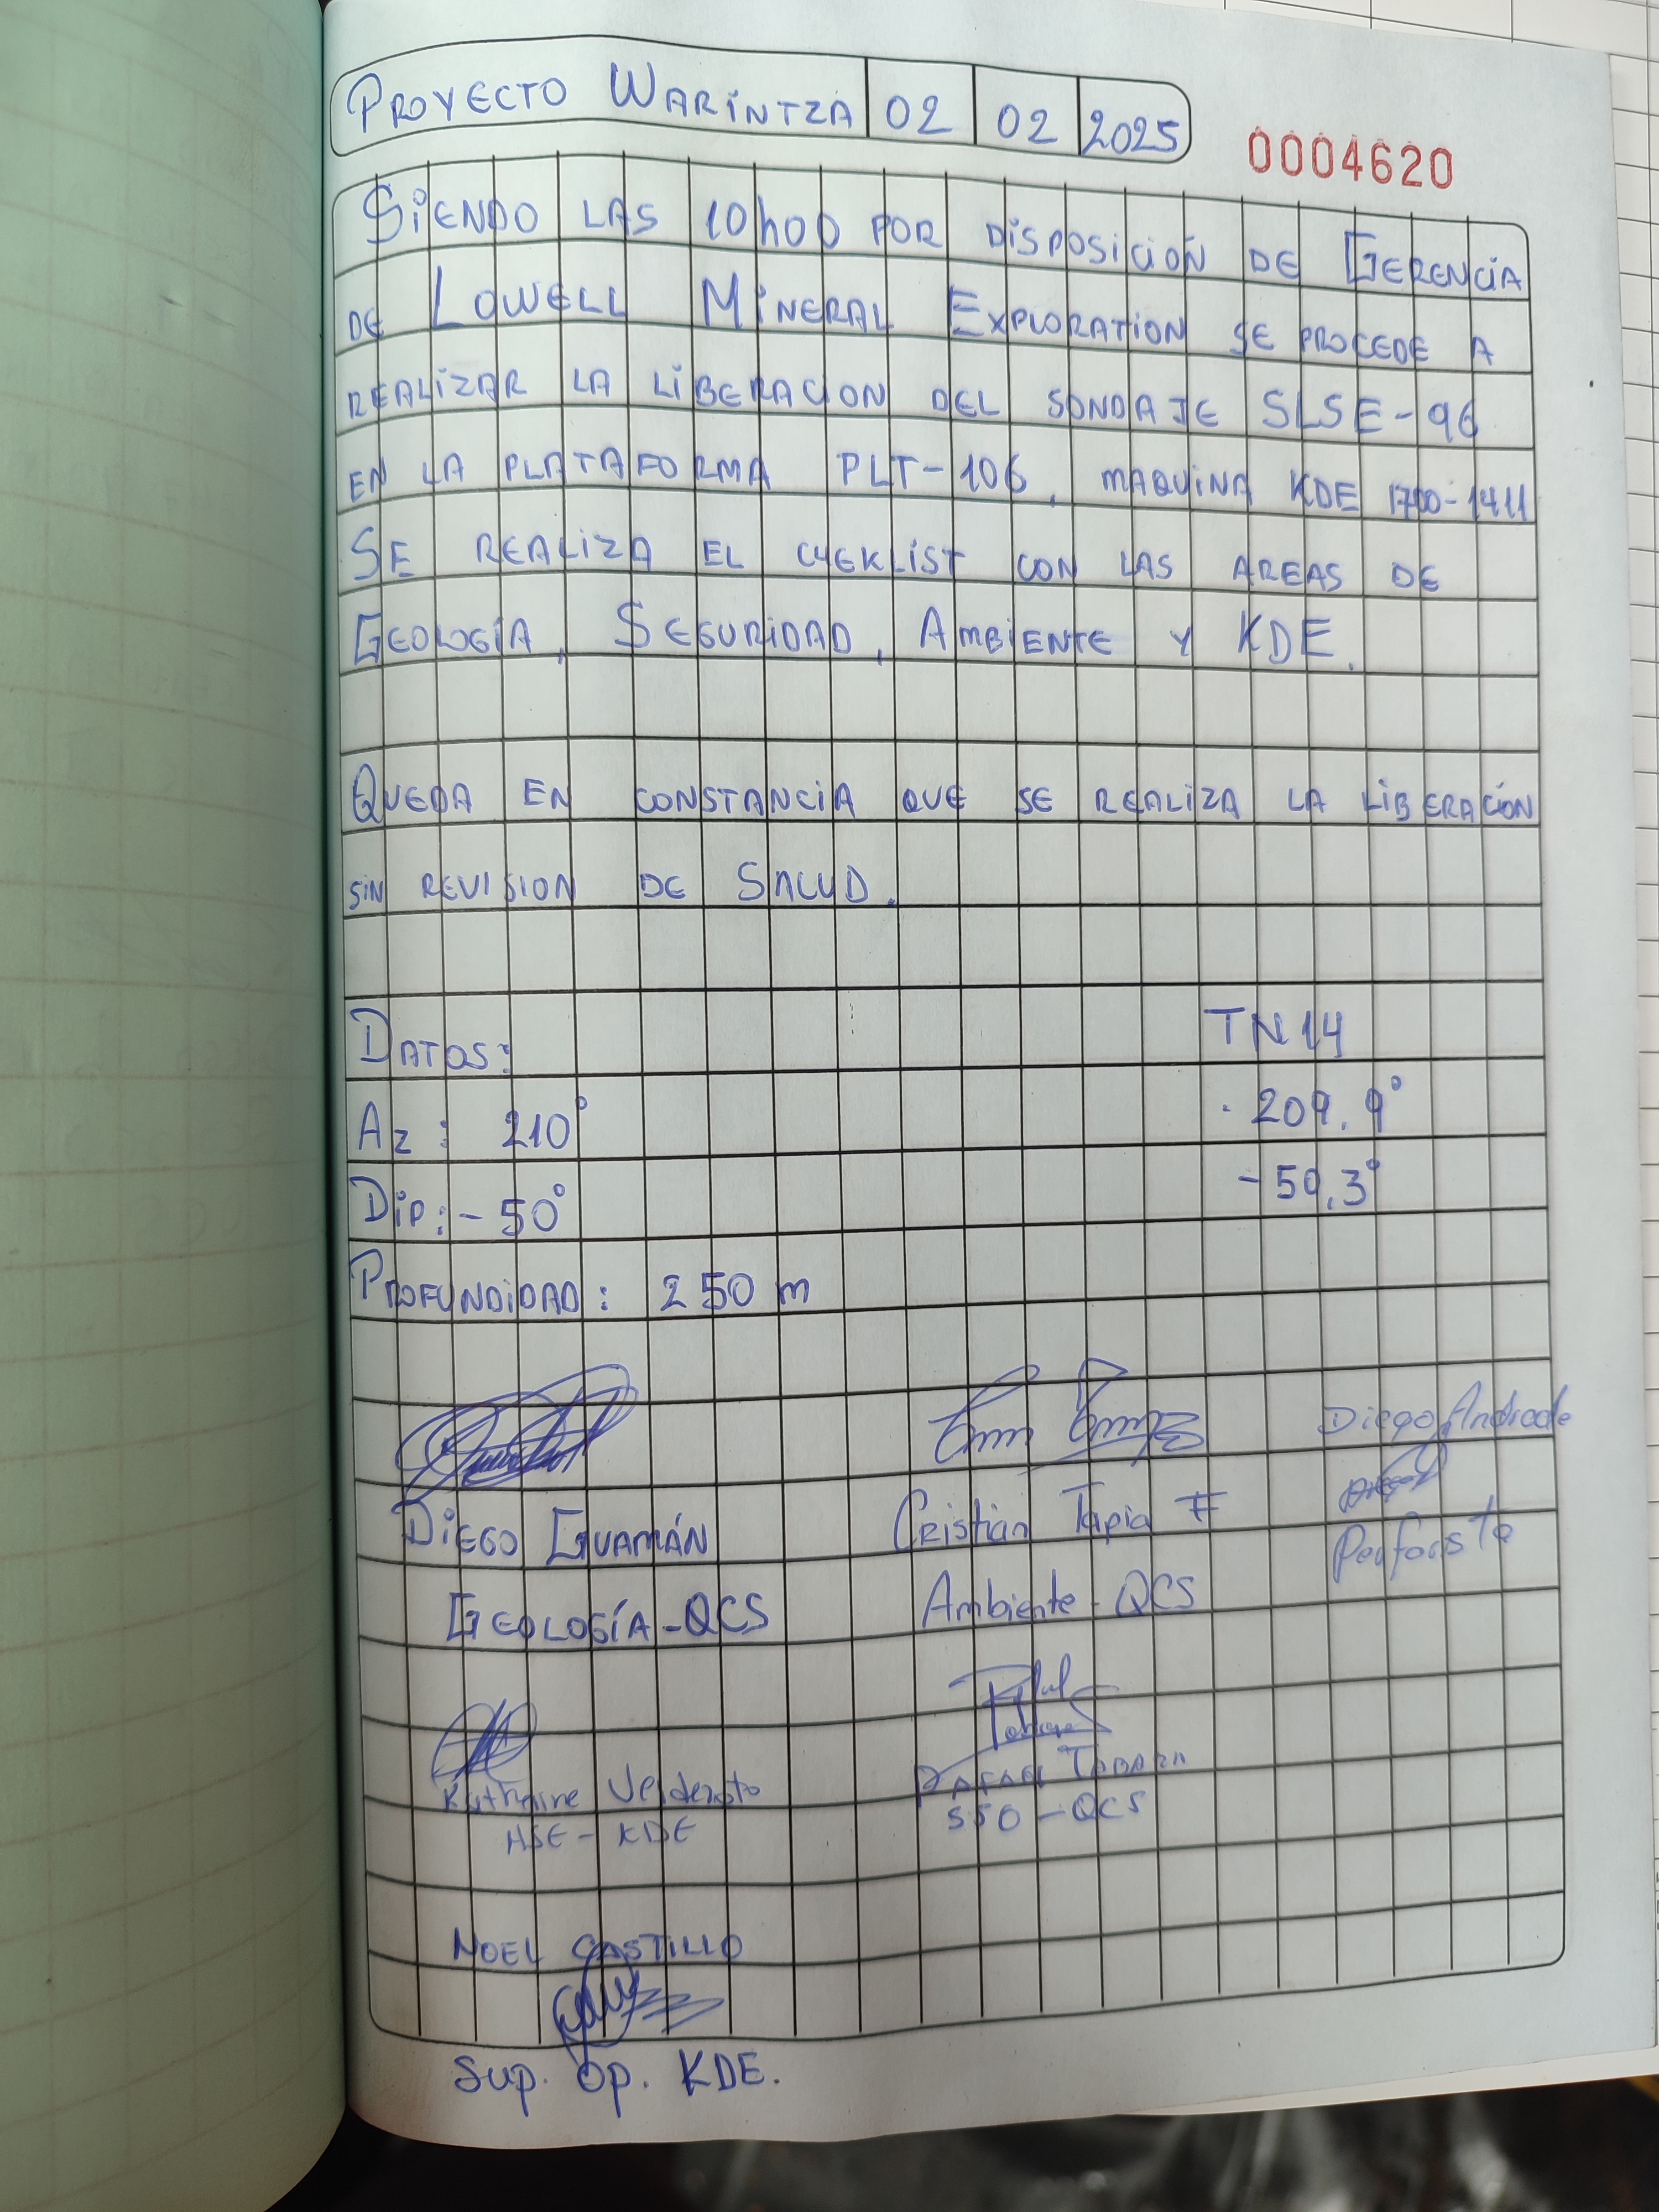 PROYECTO WARINTZA 02 02 2025
0004620
SIENDO LAS 10h00 POR DISPOSICIÓN DE GERENCIA
DE LOWELL MINERAL EXPLORATION SE PROCEDE A
REALIZAR LA LIBERACION DEL SONDAJE SLSE-96
EN LA PLATAFORMA PLT-106, MAQUINA KDE 1700-1411
SE REALIZA EL CHEKLIST CON LAS AREAS DE
GEOLOGÍA, SEGURIDAD, AMBIENTE Y KDE.
QUEDA EN CONSTANCIA QUE SE REALIZA LA LIBERACIÓN
SIN REVISION DE SALUD.
DATOS: TN14
AZ: 210° 209.9°
DIP: -50° -50.3°
PROFUNDIDAD: 250 m
Diego Andrade
DIEGO GUAMÁN Cristian Tapia F
Perforista
GEOLOGÍA-QCS Ambiente-QCS
Katherine
RAFAEL
HSE-KDE SSO-QCS
NOEL CASTILLO
Sup. Op. KDE.